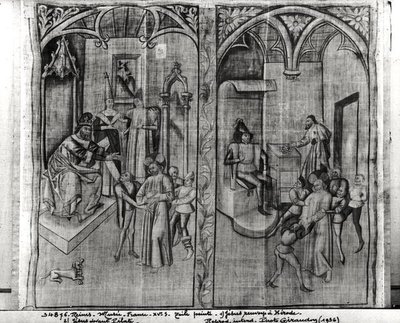 34836. Reims. Musée. France. XVe S. Toile peinte. a) Jésus renvoyé à Hérode.
b) Jésus devant Pilate. Photo Giraudon (1936)